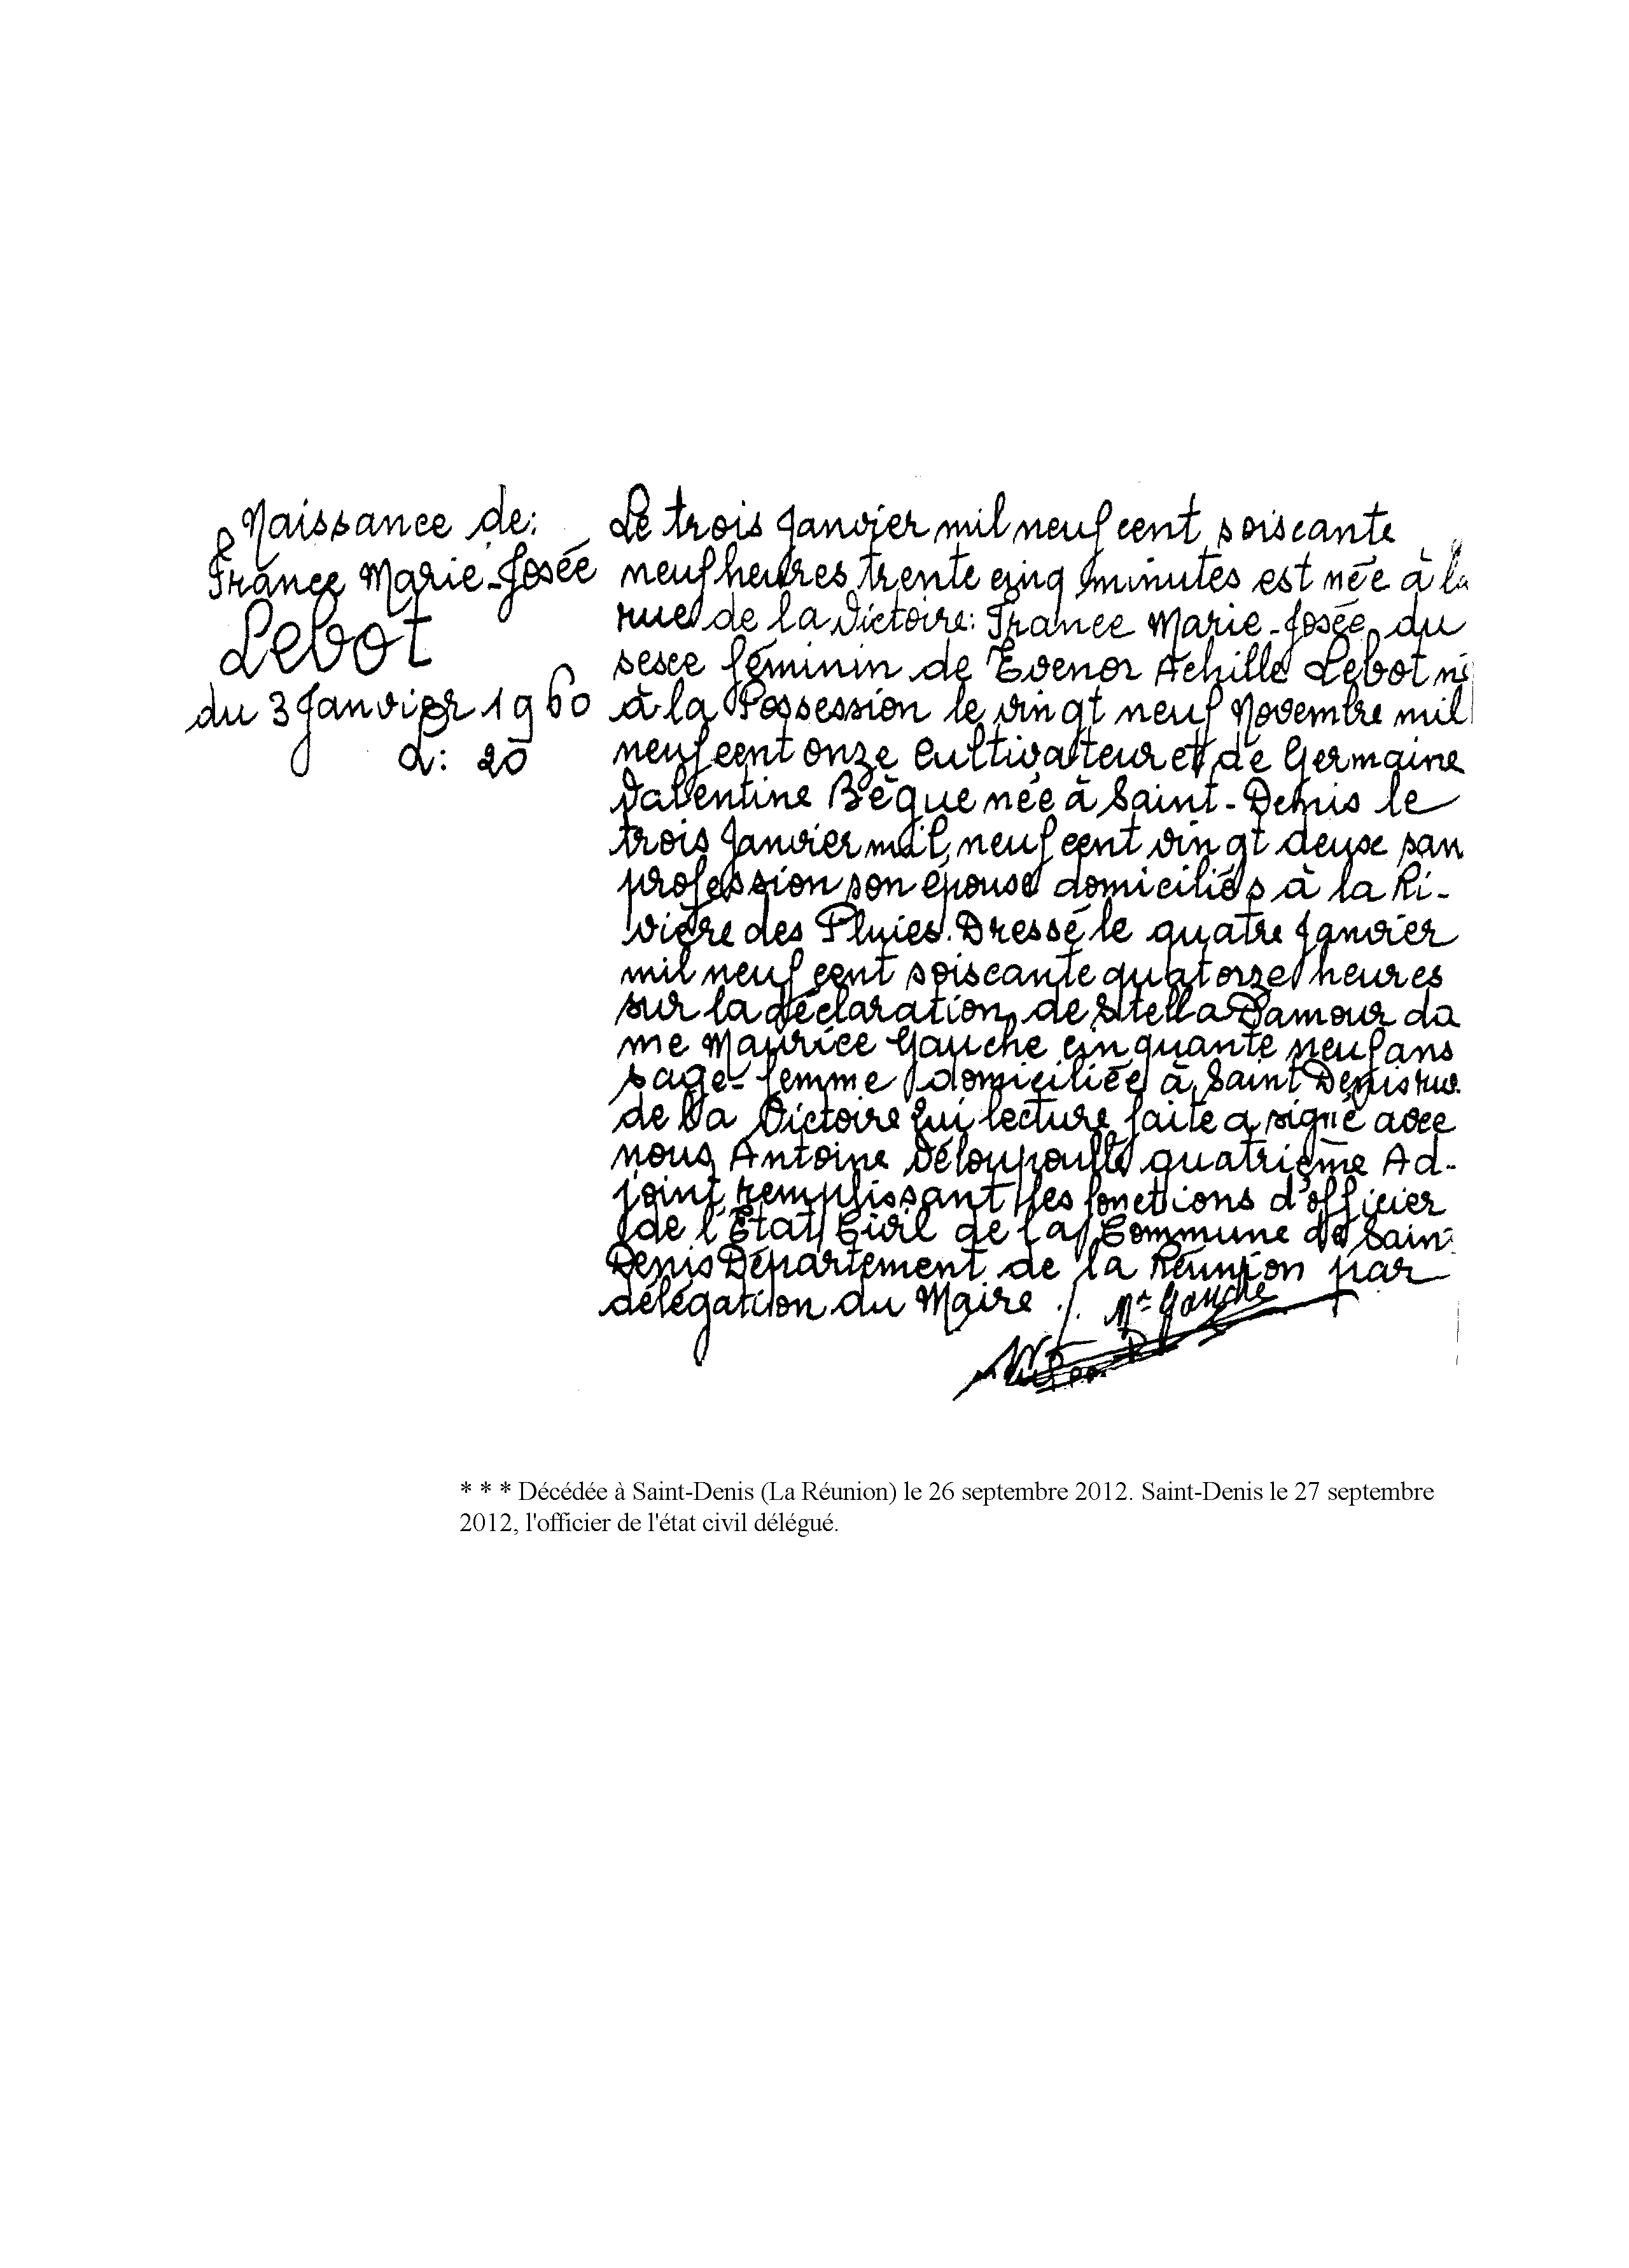 Naissance de:
France Marie-Josée
Lebot
du 3 Janvier 1960
d: 20
Le trois Janvier mil neuf cent soixante
neuf heures trente cinq minutes est née à la
rue de la Victoire: France Marie-Josée du
sexe féminin de Evenor Achille Lebot né
à la Possession le vingt neuf Novembre mil
neuf cent onze Cultivateur et de Germaine
Valentine Bègue née à Saint-Denis le
trois Janvier mil neuf cent vingt deux san
profession son épouse domiciliés à la Ri-
vière des Pluies. Dressé le quatre Janvier
mil neuf cent soixante quatorze heures
sur la déclaration de Stella Damour da
me Maurice Gauche cinquante neuf ans
sage-femme domiciliée à Saint Denis rue
de la Victoire qui lecture faite a signé avec
nous Antoine quatrième Ad-
joint remplissant les fonctions d'officier
de l'Etat Civil de la Commune de Sain
Denis Département de la Réunion par
délégation du Maire ./. Mᵉ Gauche
* * * Décédée à Saint-Denis (La Réunion) le 26 septembre 2012. Saint-Denis le 27 septembre
2012, l'officier de l'état civil délégué.